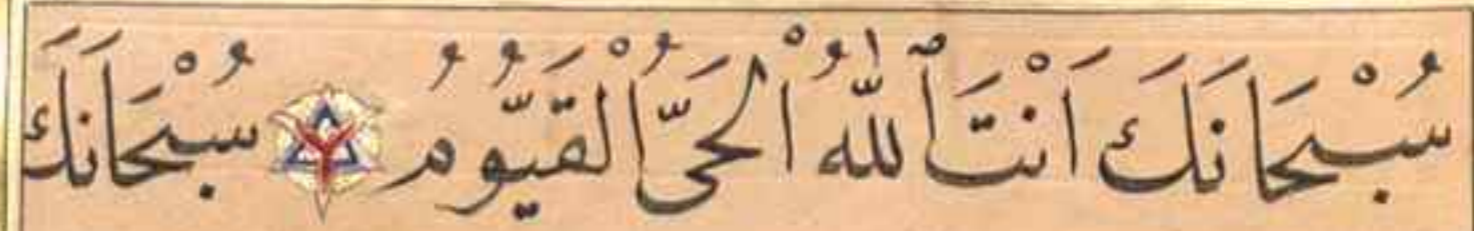 سُبْحَانَكَ اَنْتَ ٱللّٰهُ الْحَىُّ الْقَيُّومُ سُبْحَانَكَ